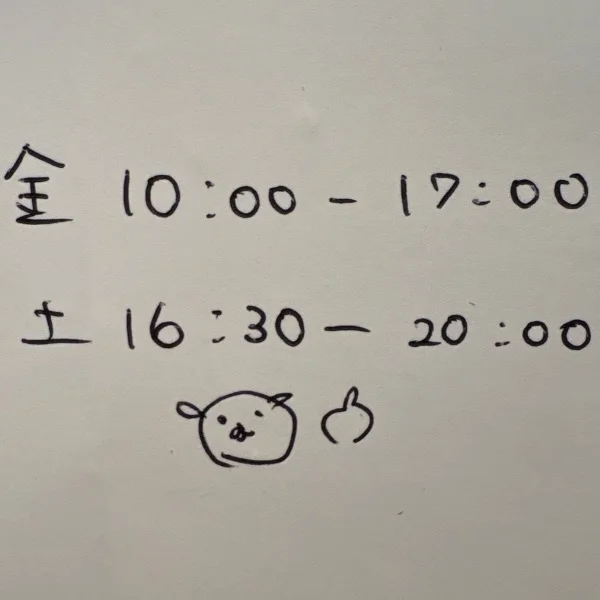 金 10:00 - 17:00
土 16:30 - 20:00